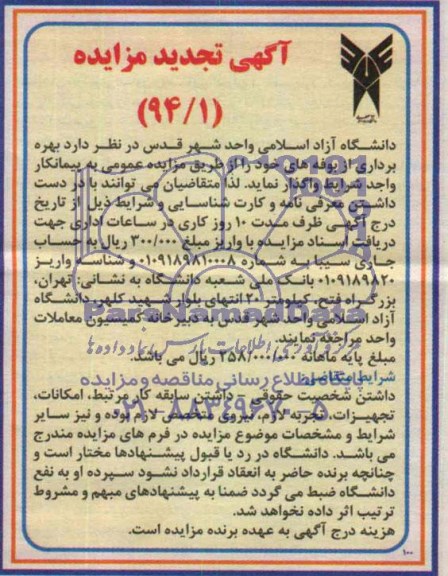 آگهی تجدید مزایده
(۹۴/۱)
دانشگاه آزاد اسلامی واحد شهر قدس در نظر دارد بهره
برداری از بوفه های خود را از طریق مزایده عمومی به پیمانکار
واجد شرایط واگذار نماید. لذا متقاضیان می توانند با در دست
داشتن معرفی نامه و کارت شناسایی و شرایط ذیل از تاریخ
درج آگهی ظرف مدت ۱۰ روز کاری در ساعات اداری جهت
دریافت اسناد مزایده با واریز مبلغ ۳۰۰/۰۰۰ ریال به حساب
جاری سیبا به شماره ۰۱۰۹۱۸۹۸۱۰۰۰۸ و شناسه واریز
۰۱۰۹۱۸۹۸۲۰ بانک ملی شعبه دانشگاه به نشانی: تهران،
بزرگراه فتح، کیلومتر ۲۰ انتهای بلوار شهید کلهر، دانشگاه
آزاد اسلامی واحد شهر قدس به دبیرخانه کمیسیون معاملات
واحد مراجعه نمایند.
مبلغ پایه ماهانه ۲۵۸/۰۰۰/۰۰۰ ریال می باشد.
شرایط متقاضی
داشتن شخصیت حقوقی - داشتن سابقه کار مرتبط، امکانات،
تجهیزات، تجربه لازم، نیروی متخصص لازم بوده و نیز سایر
شرایط و مشخصات موضوع مزایده در فرم های مزایده مندرج
می باشد. دانشگاه در رد یا قبول پیشنهادها مختار است و
چنانچه برنده حاضر به انعقاد قرارداد نشود سپرده او به نفع
دانشگاه ضبط می گردد ضمنا به پیشنهادهای مبهم و مشروط
ترتیب اثر داده نخواهد شد.
هزینه درج آگهی به عهده برنده مزایده است.
۱۰۰
ParsNamadData
پایگاه اطلاع رسانی مناقصه و مزایده
۰۲۱-۸۸۳۴۹۶۷۰-۵